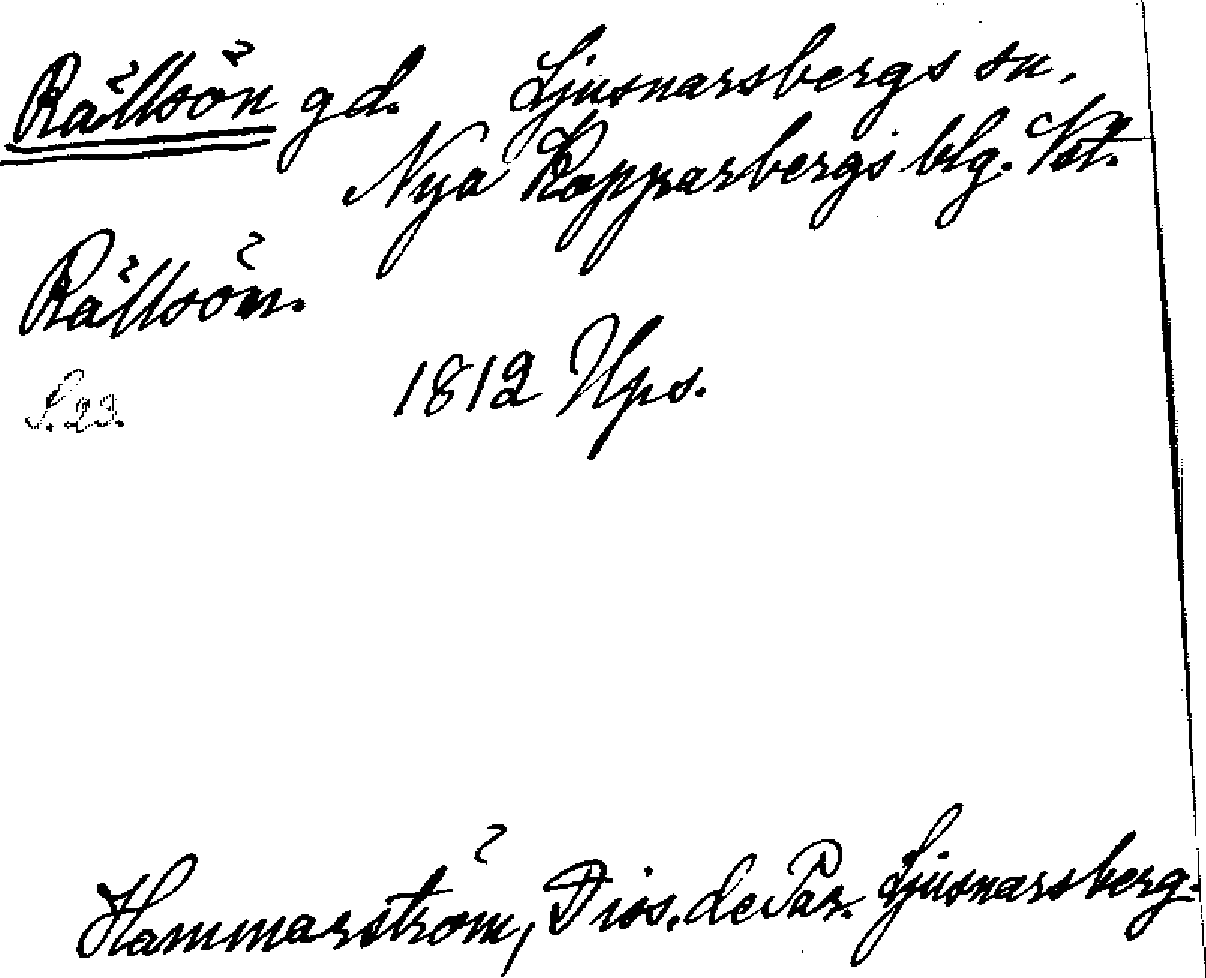 Rällsön gd. Ljusnarsbergs sn.
Nya Kopparbergs blg. Vstm.
Rällsön.
S. 22. 1812 Ups.
Hammarström, Diss. de Par. Ljusnarsberg.